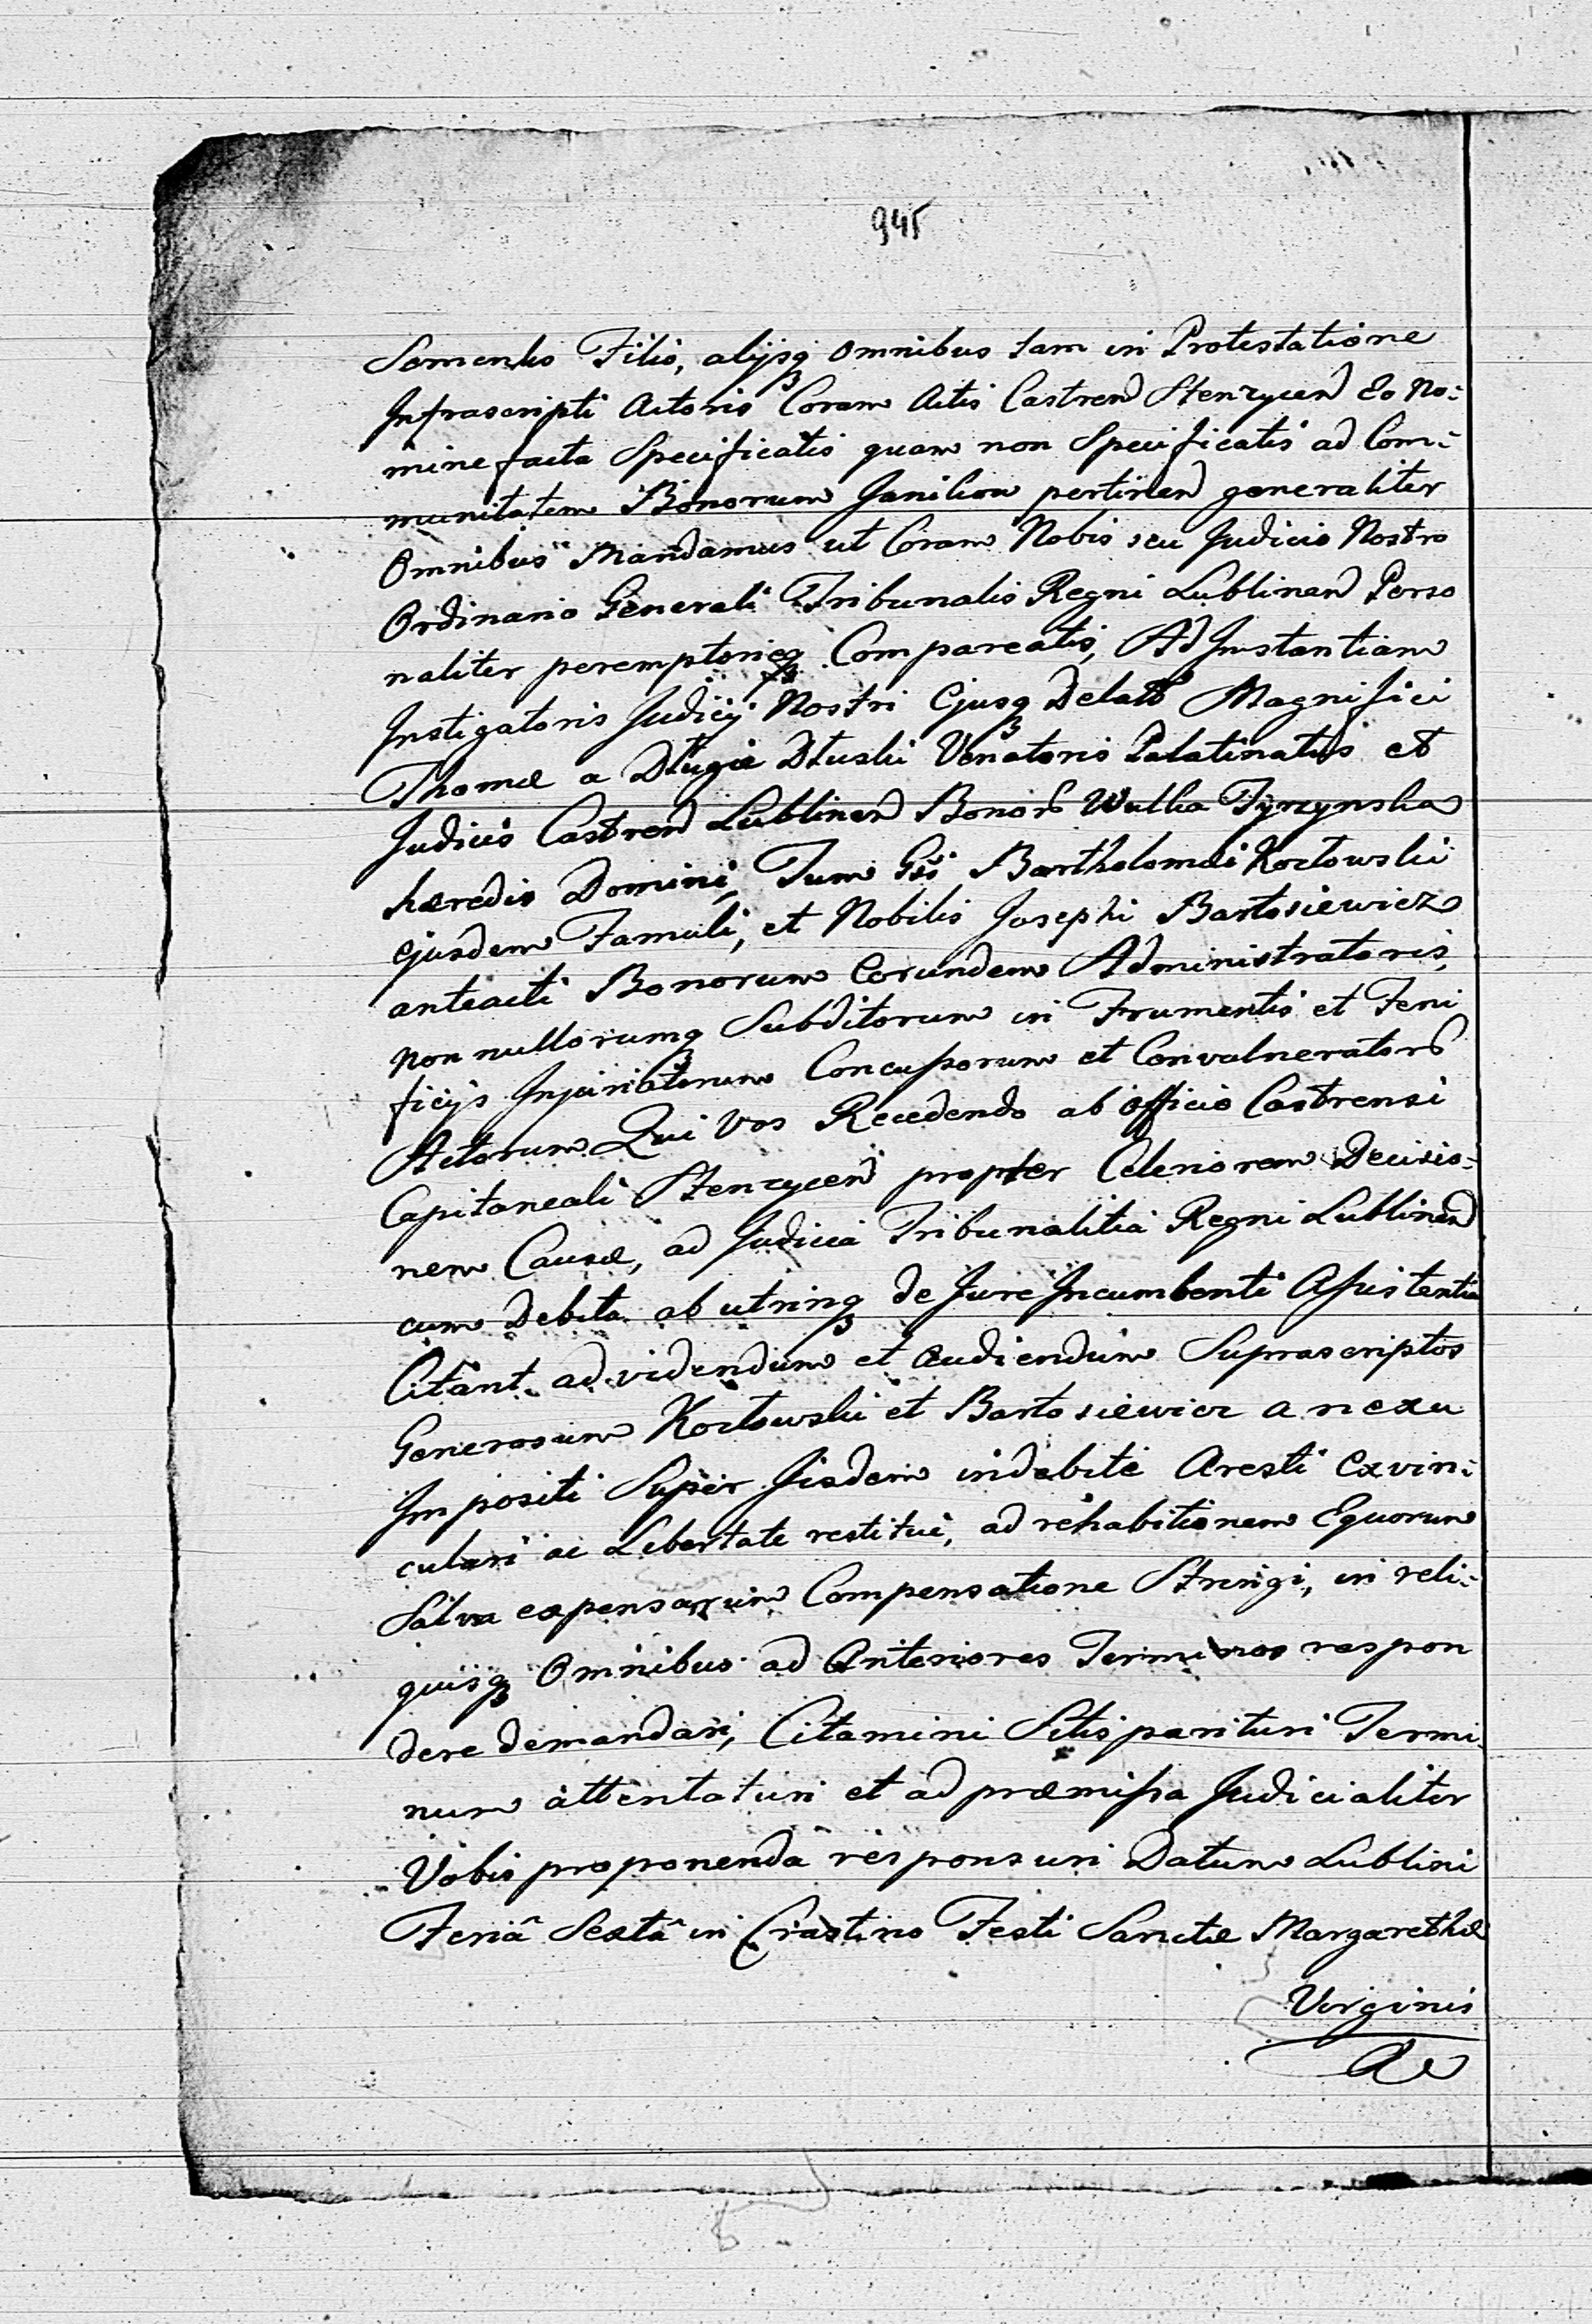 945
Somenko Filio, alijsq3 omnibus tam in Protestatione
Infrascripti Actoris Coram Actis Castren Stenzycen Eo No=
mine facta Specificatis quam non Specificatis ad Com=
munitatem Bonorum Janikow pertinen generaliter
Omnibus Mandamus ut Coram Nobis seu Judicio Nostro
Ordinario Generali Tribunalis Regni Lublinen Perso
naliter peremptorieq3 Compareatis, Ad Instantiam
Instigatoris Judicij Nostri Ejusq3 Delato Magnifici
Thomæ a Długie Dłuski Venatoris Palatinatus et
Judicis Castren Lublinen Bonor Wulka Tyrzynska
hæredis Domini, Tum Gsi Bartholomæi Kozłowski
Ejusdem Famuli, et Nobilis Josephi Bartosiewicz
anteacti Bonorum Eorundem Administratoris,
non nullorumq3 Subditorum in Frumentis et Feni
ficijs Injuriatorum Concussorum et Convulnerator
Actorum Qui Vos Recedendo ab officio Castrensi
Capitaneali Stenzycen propter Celeriorem Decisio=
nem Causæ, ad Judicia Tribunalitia Regni Lublinen
cum Debita ab utrinq3 de Jure Incumbenti Assistentia
Citant ad videndum et audiendum Suprascriptos
Generosum Kozłowski et Bartosiewicz a nexu
Impositi Super Jisdem indebite Aresti Exvin=
culari ac Libertate restitui, ad rehabitionem Equorum
Salva expensarum Compensatione Stringi, in reli=
quisq3 Omnibus ad Anteriores Terminos respon
dere demandari, Citamini Sitis parituri Termi
num attentaturi et ad præmissa Judicialiter
Vobis proponenda responsuri Datum Lublini
Feriâ Sextâ in Crastino Festi Sanctæ Margarethæ
Virginis